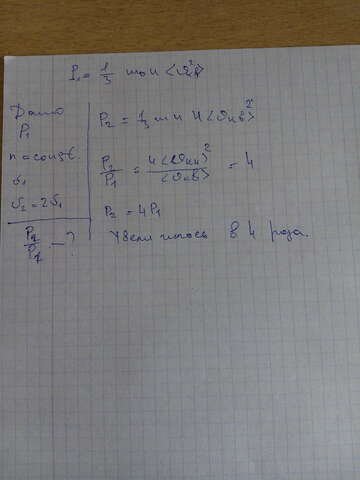 P₁ = 1/3 m₀ n <υ²кв>
Дано
P₁
n = const
υ₁
υ₂ = 2υ₁
P₂/P₁ — ?
P₂ = 1/3 m n 4 <υкв>²
P₂/P₁ = 4<υкв>²/<υкв> = 4
P₂ = 4P₁
Увеличилось в 4 раза.